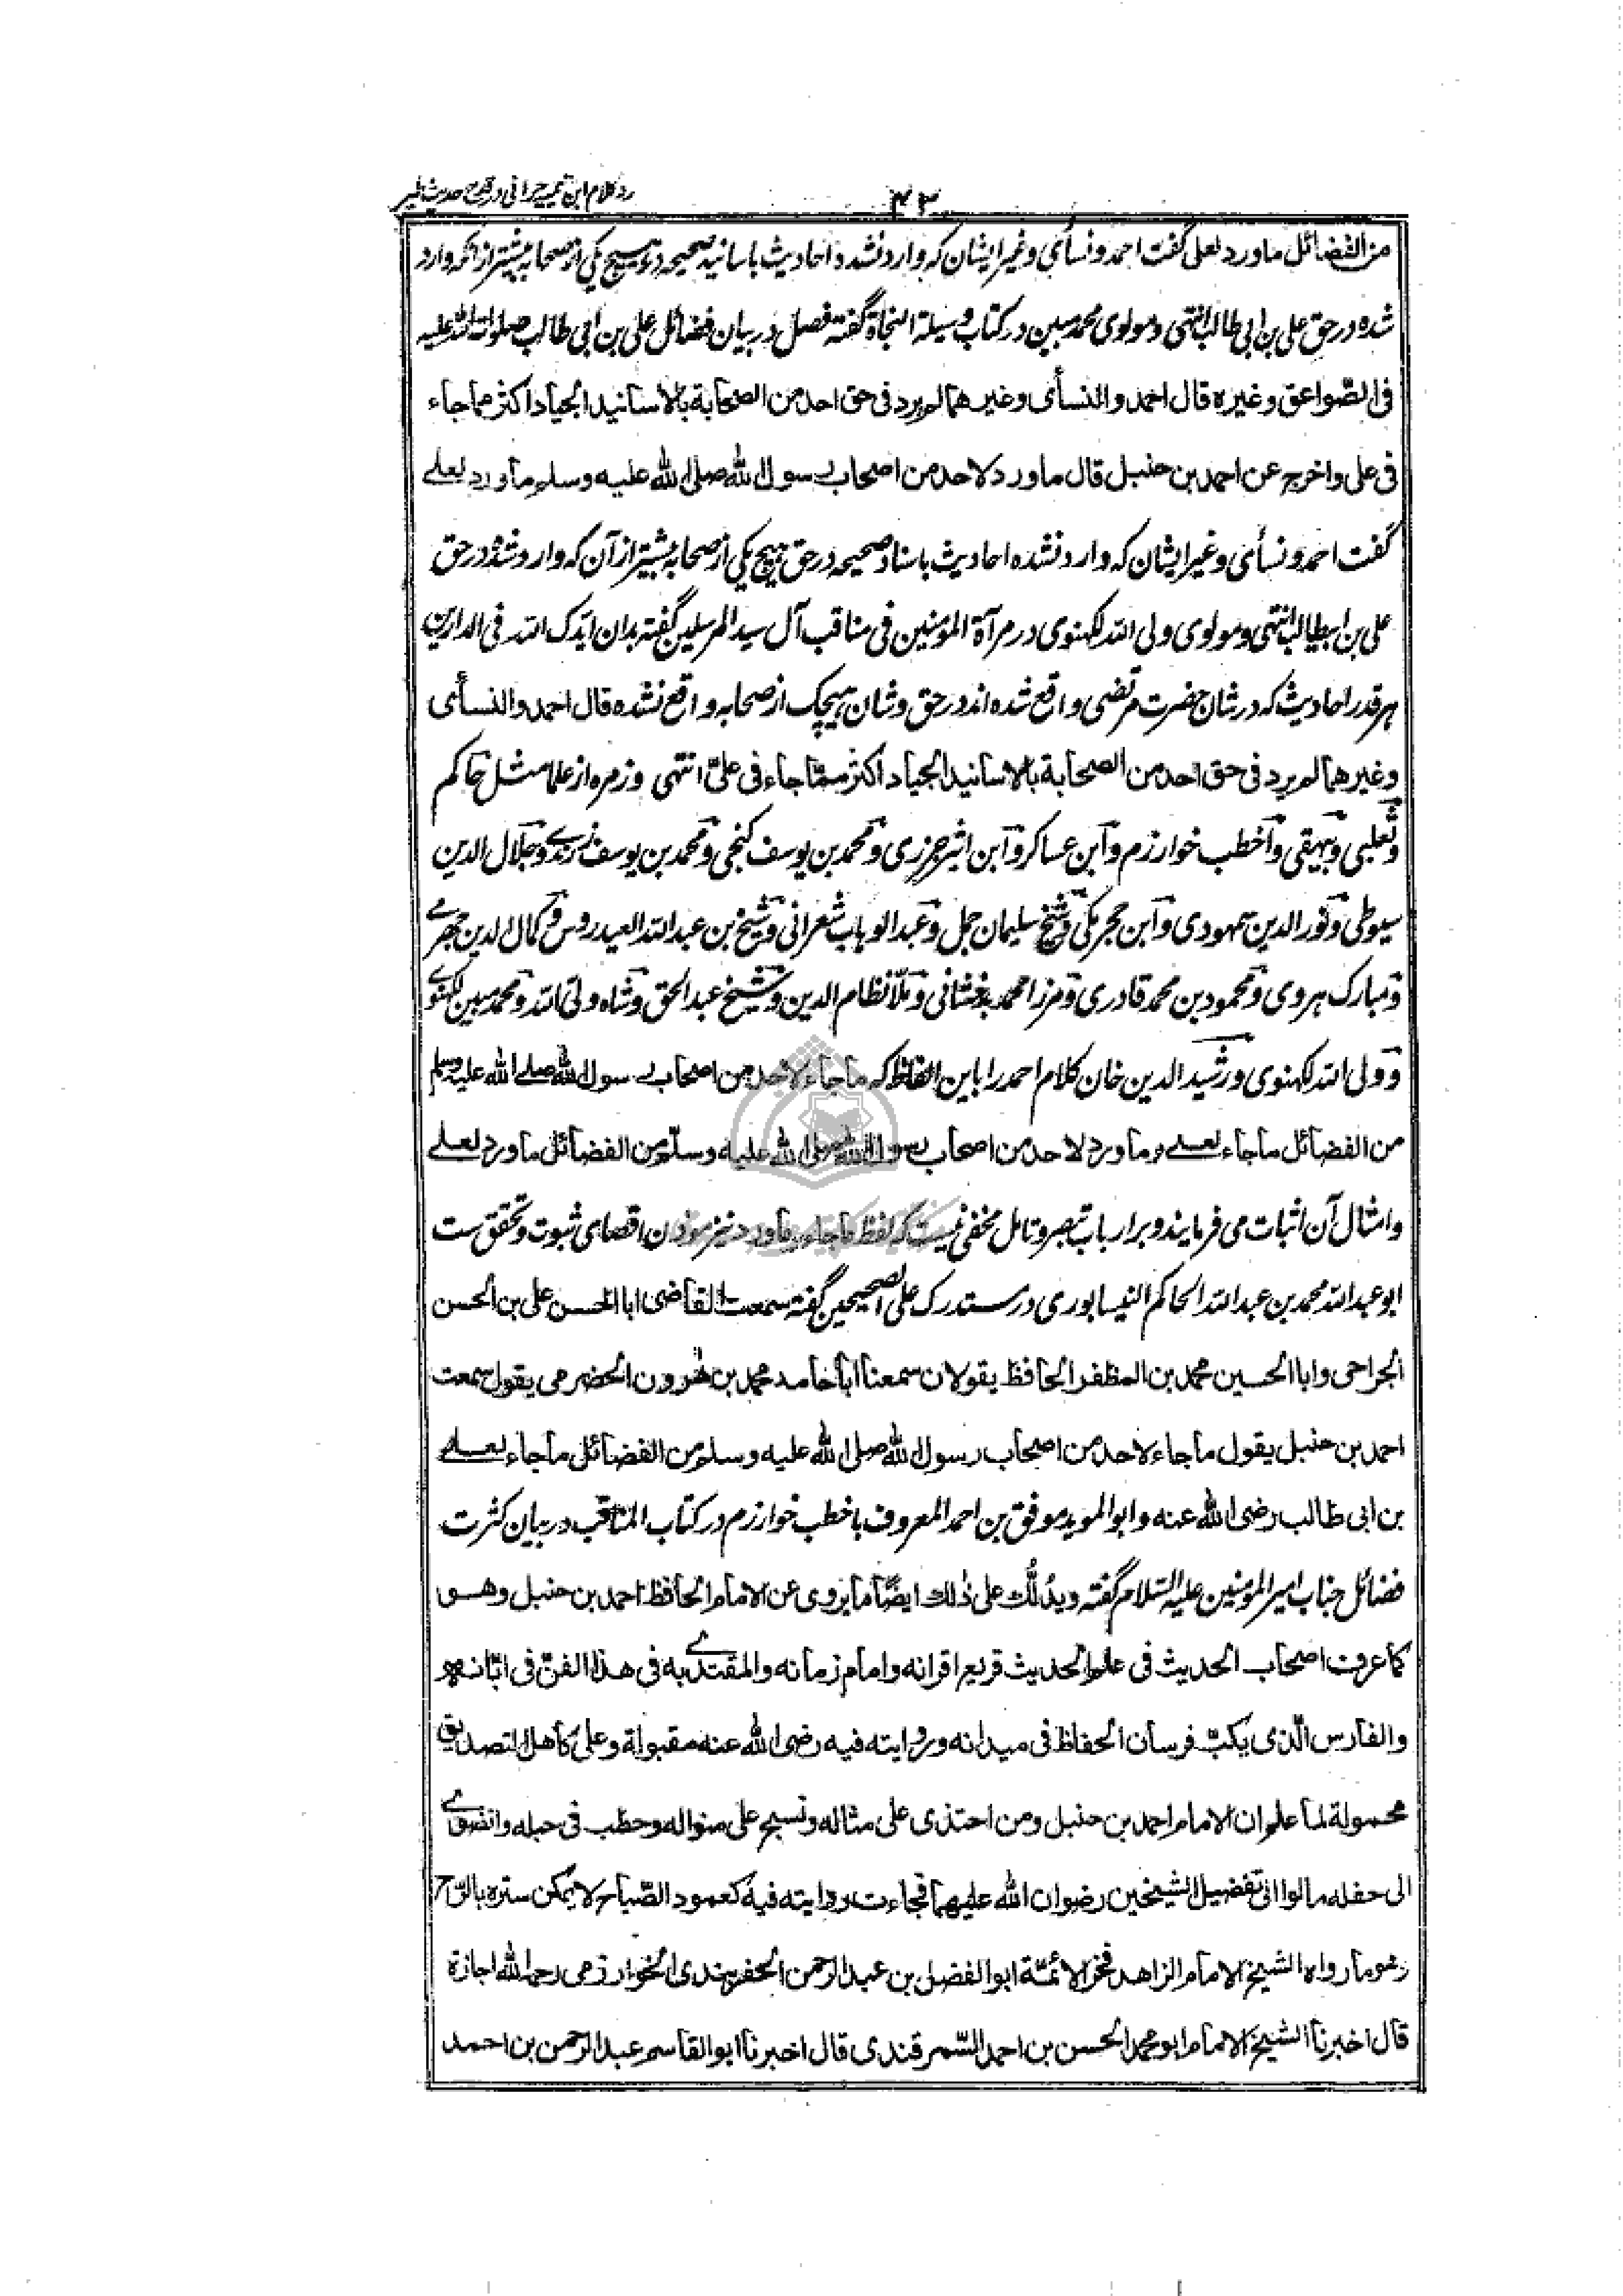 ۴۳
رد کلام ابن تیمیه حرانی در قدح حدیث طیر
من الفضائل ما ورد لعلی گفت احمد و نسأی و غیر ایشان که وارد نشده احادیث باسانید صحیحه در هیچ یکی از صحابه بیشتر از آنکه وارد
شده در حق علی بن ابی طالب انتهی و مولوی محمد مبین در کتاب وسیلة النجاة گفته فصل در بیان فضائل علی بن ابی طالب صلوات الله علیه
فی الصّواعق و غیره قال احمد والنسأی وغیرهما لم یرد فی حق احد من الصحابة بالاسانید الجیاد اکثر مما جاء
فی علی واخرج عن احمد بن حنبل قال ما ورد لاحد من اصحاب رسول الله صلی الله علیه وسلم ما ورد لعلے
گفت احمد و نسأی و غیر ایشان که وارد نشده احادیث باسناد صحیحه در حق هیچ یکی از صحابه بیشتر از آن که وارد شده در حق
علی بن ابیطالب انتهی و مولوی ولی الله لکهنوی در مرآة المؤمنین فی مناقب آل سید المرسلین گفته بدان ایّدک الله فی الدارین
هر قدر احادیث که در شان حضرت مرتضی واقع شده اند در حق و شان هیچیک از صحابه واقع نشده قال احمد والنسأی
وغیرهما لم یرد فی حق احد من الصحابة بالاسانید الجیاد اکثر ممّا جاء فی علیّ انتهی و زمره از علما مثل حاکم
و ثعلبی و بیهقی و اخطب خوارزم و ابن عساکر و ابن اثیر جزری و محمد بن یوسف کنجی و محمد بن یوسف زرندے و جلال الدین
سیوطی و نور الدین سمهودی و ابن حجر مکی و شیخ سلیمان جمل و عبد الوهاب شعرانی و شیخ بن عبد الله العیدروس و کمال الدین جهرمے
و مبارک هروی و محمود بن محمد قادری و مرزا محمد بدخشانی و ملّا نظام الدین و شیخ عبد الحق و شاه ولی الله و محمد مبین لکهنوے
و ولی الله لکهنوی و رشید الدین خان کلام احمد را باین الفاظ که ما جاء لاحد من اصحاب رسول الله صلے الله علیه وسلم
من الفضائل ما جاء لعلے و ما ورد لاحد من اصحاب رسول الله صلی الله علیه وسلّم من الفضائل ما ورد لعلے
و امثال آن اثبات می فرمایند و بر ارباب تبصر و تامل مخفی نیست که لفظ ما جاء و ما ورد نیز مودن اقصای ثبوت و تحقق ست
ابو عبد الله محمد بن عبد الله الحاکم النیسابوری در مستدرک علی الصحیحین گفته سمعت القاضی ابا الحسن علی بن الحسن
الجراحی وابا الحسین محمد بن المظفر الحافظ یقولان سمعنا ابا حامد محمد بن هٰرون الحضرمی یقول سمعت
احمد بن حنبل یقول ما جاء لاحد من اصحاب رسول الله صلی الله علیه وسلم من الفضائل ما جاء لعلے
بن ابی طالب رضی الله عنه و ابو الموید موفق بن احمد المعروف باخطب خوارزم در کتاب المناقب در بیان کثرت
فضائل جناب امیر المومنین علیه السّلام گفته ویدُلّک علی ذٰلک ایضًا ما یروی عن الامام الحافظ احمد بن حنبل وهو
کما عرف اصحاب الحدیث فی علم الحدیث قریع اقرانه وامام زمانه والمقتدے به فی هذا الفنّ فی ابّانه
والفارس الّذی یکبّ فرسان الحفاظ فی میدانه وروایته فیه رضی الله عنه مقبولة وعلی کاهل التصدیق
محمولة لما علم ان الامام احمد بن حنبل ومن احتذی علی مثاله ونسج علی منواله وحطب فی حبله وانضوے
الی حفله مالوا الی تفضیل الشیخین رضوان الله علیهما فجاءت روایته فیه کعمود الصّباح لا یمکن ستره بالرّاح
وهو ما رواه الشیخ الامام الزاهد فخر الائمّة ابو الفضل بن عبد الرحمن الحفربندی الخوارزمی رحمه الله اجازة
قال اخبرنا الشیخ الامام ابو محمد الحسن بن احمد السّمرقندی قال اخبرنا ابو القاسم عبد الرحمن بن احمد